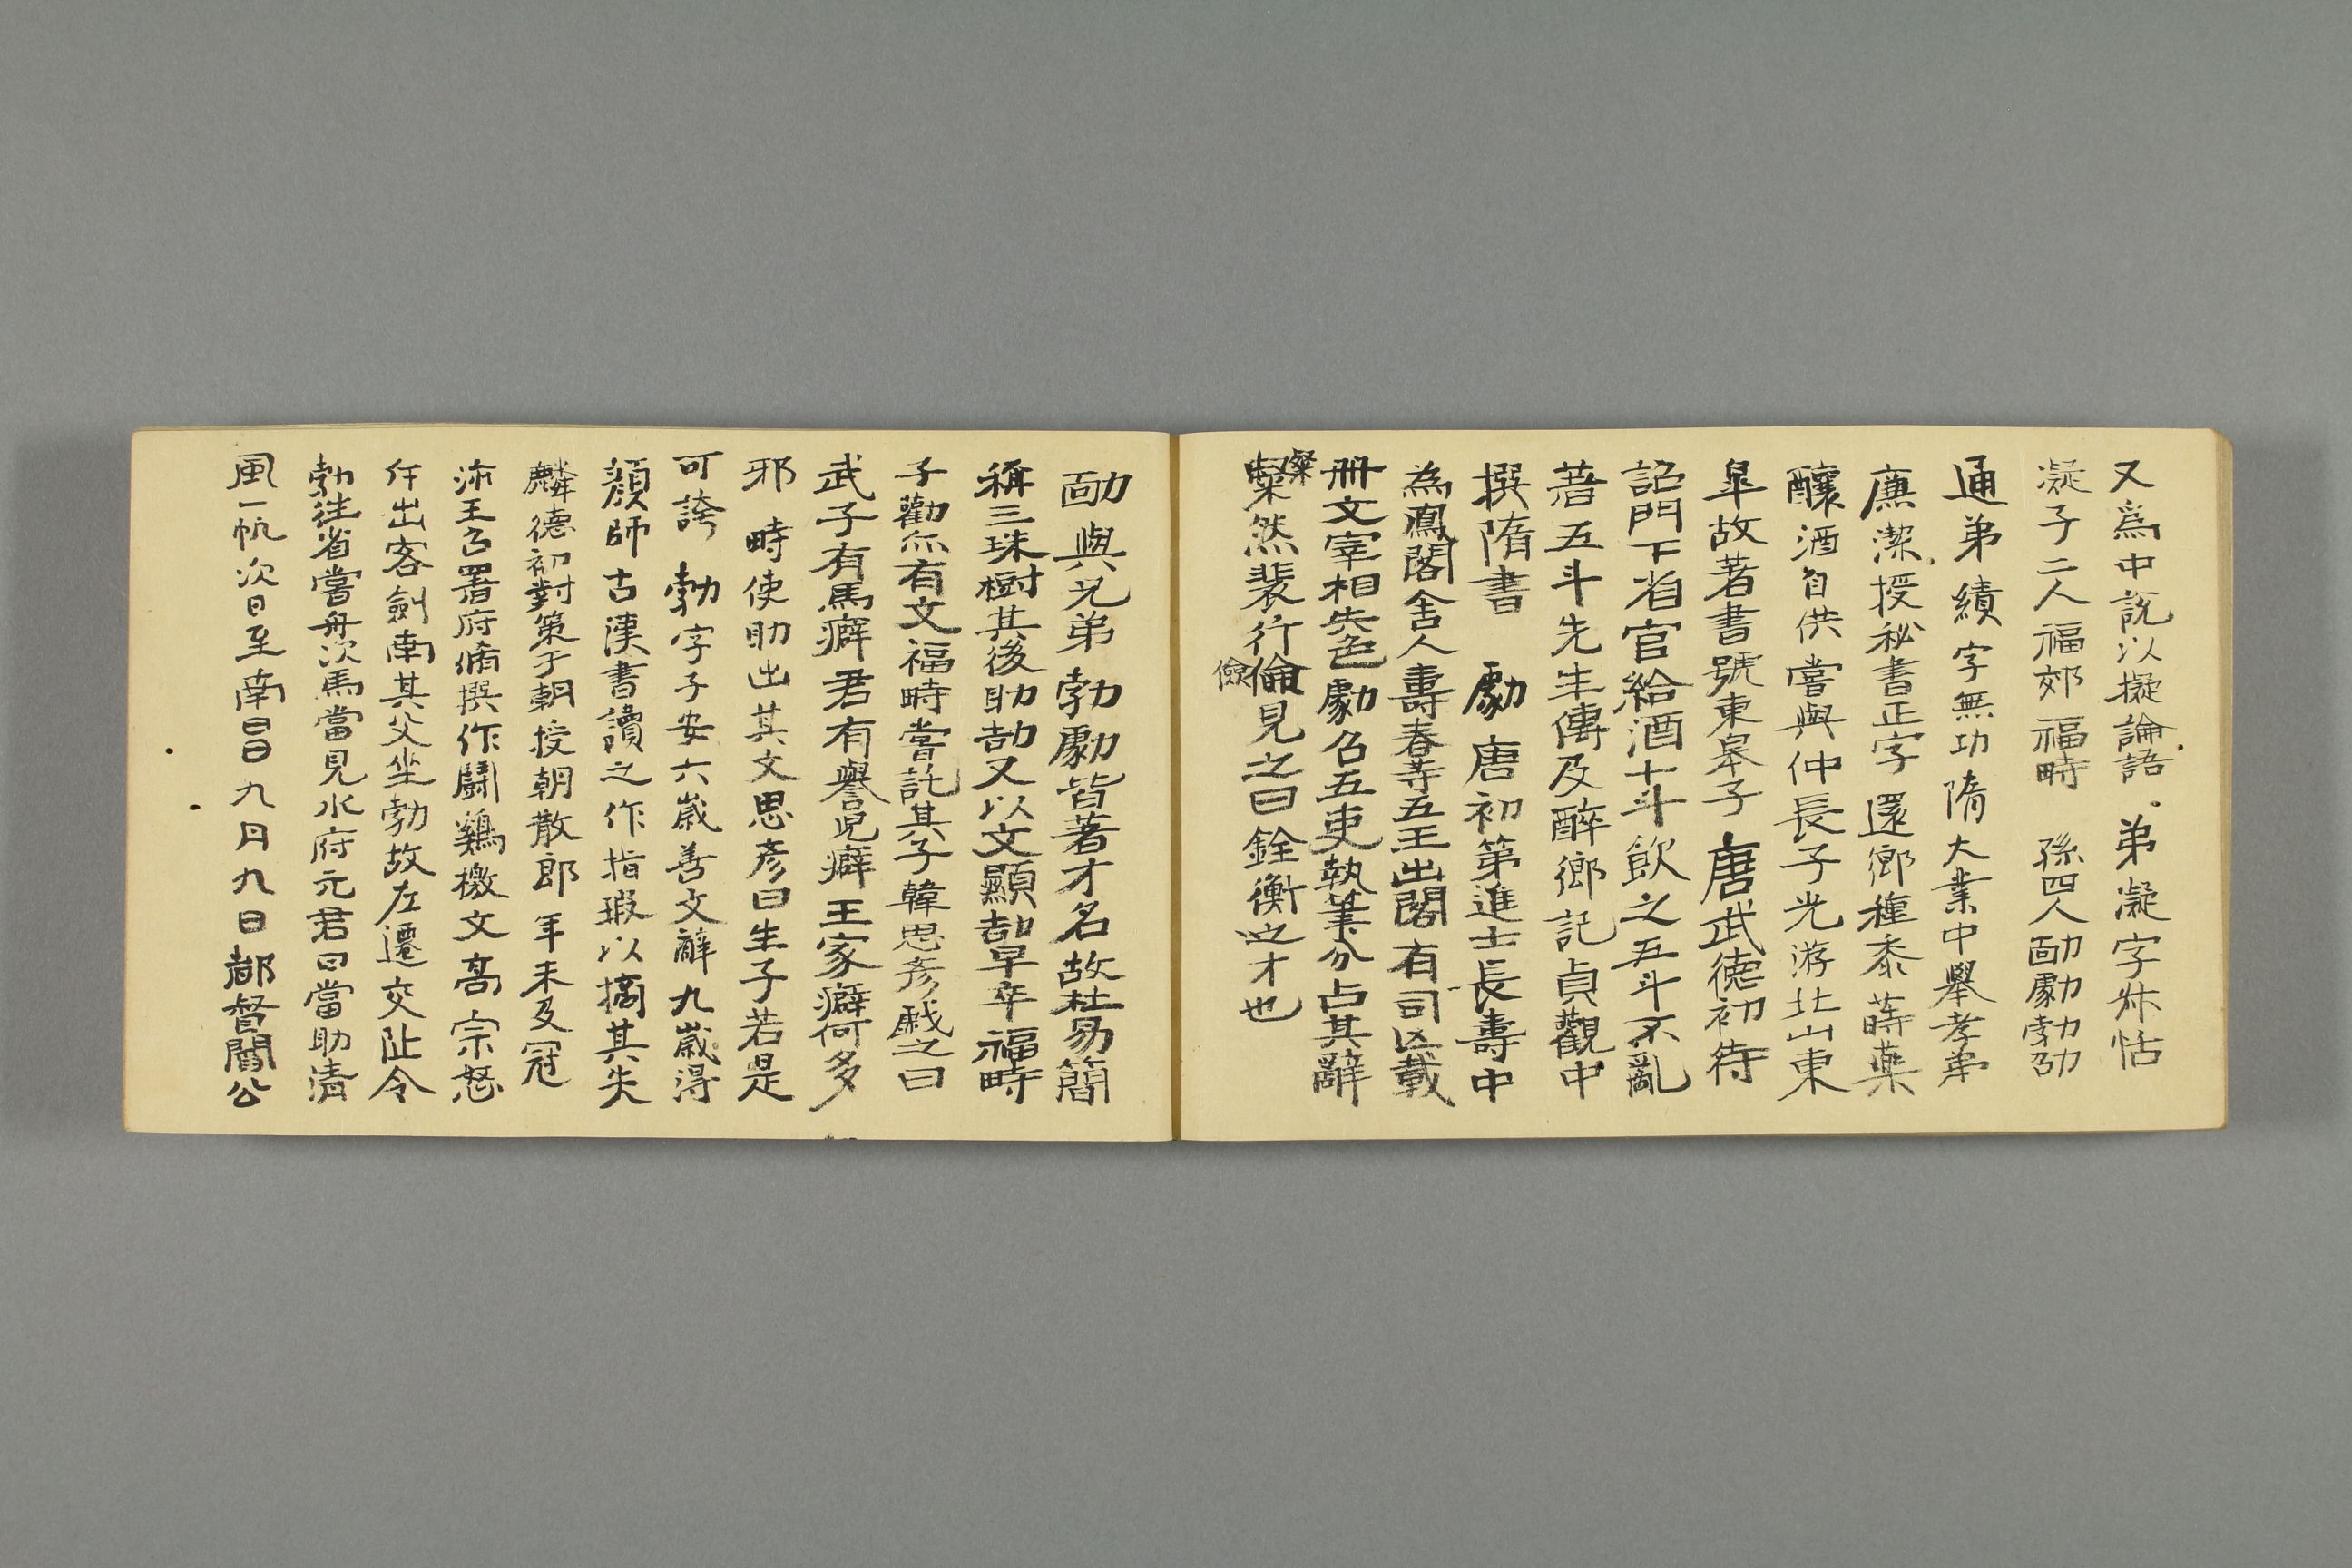 又爲中說以擬論語弟凝字叔恬
凝子二人福郊福畤 孫四人勔勮勃劭
通弟績字無功隋大業中舉孝弟
廉潔授秘書正字還鄉種黍蒔藥
釀酒自供嘗與仲長子光游北山東
皐故著書號東皋子唐武德初待
詔門下省官給酒十斗飮之五斗不亂
著五斗先生傳及醉鄉記貞觀中
撰隋書 勮唐初第進士長壽中
為鳳閣舍人壽春等五王出閣有司凶載
冊文宰相失色勮召五吏執筆分占其辭
粲然裴行儉見之曰銓衡之才也
勔與兄弟勃勮皆著才名故杜易簡
稱三珠樹其後助劼又以文顯劼早卒福畤
子勸亦有文福畤嘗詫其子韓思彦戱之曰
武子有馬癖君有譽児癖王家癖何多
邪 畤使助出其文思彦曰生子若是
可誇 勃字子安六歳善文辭九歳淂
顔師古漢書讀之作指瑕以擿其失
麟德初對策于朝授朝散郎年未及冠
沛王召署府脩撰作鬪鷄檄文高宗怒
斥出客劍南其父坐勃故左遷交阯令
勃往省嘗舟次馬當見水府元君曰當助清
風一帆次日至南昌九月九日都督閻公